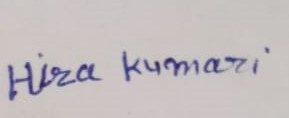 Hira Kumari